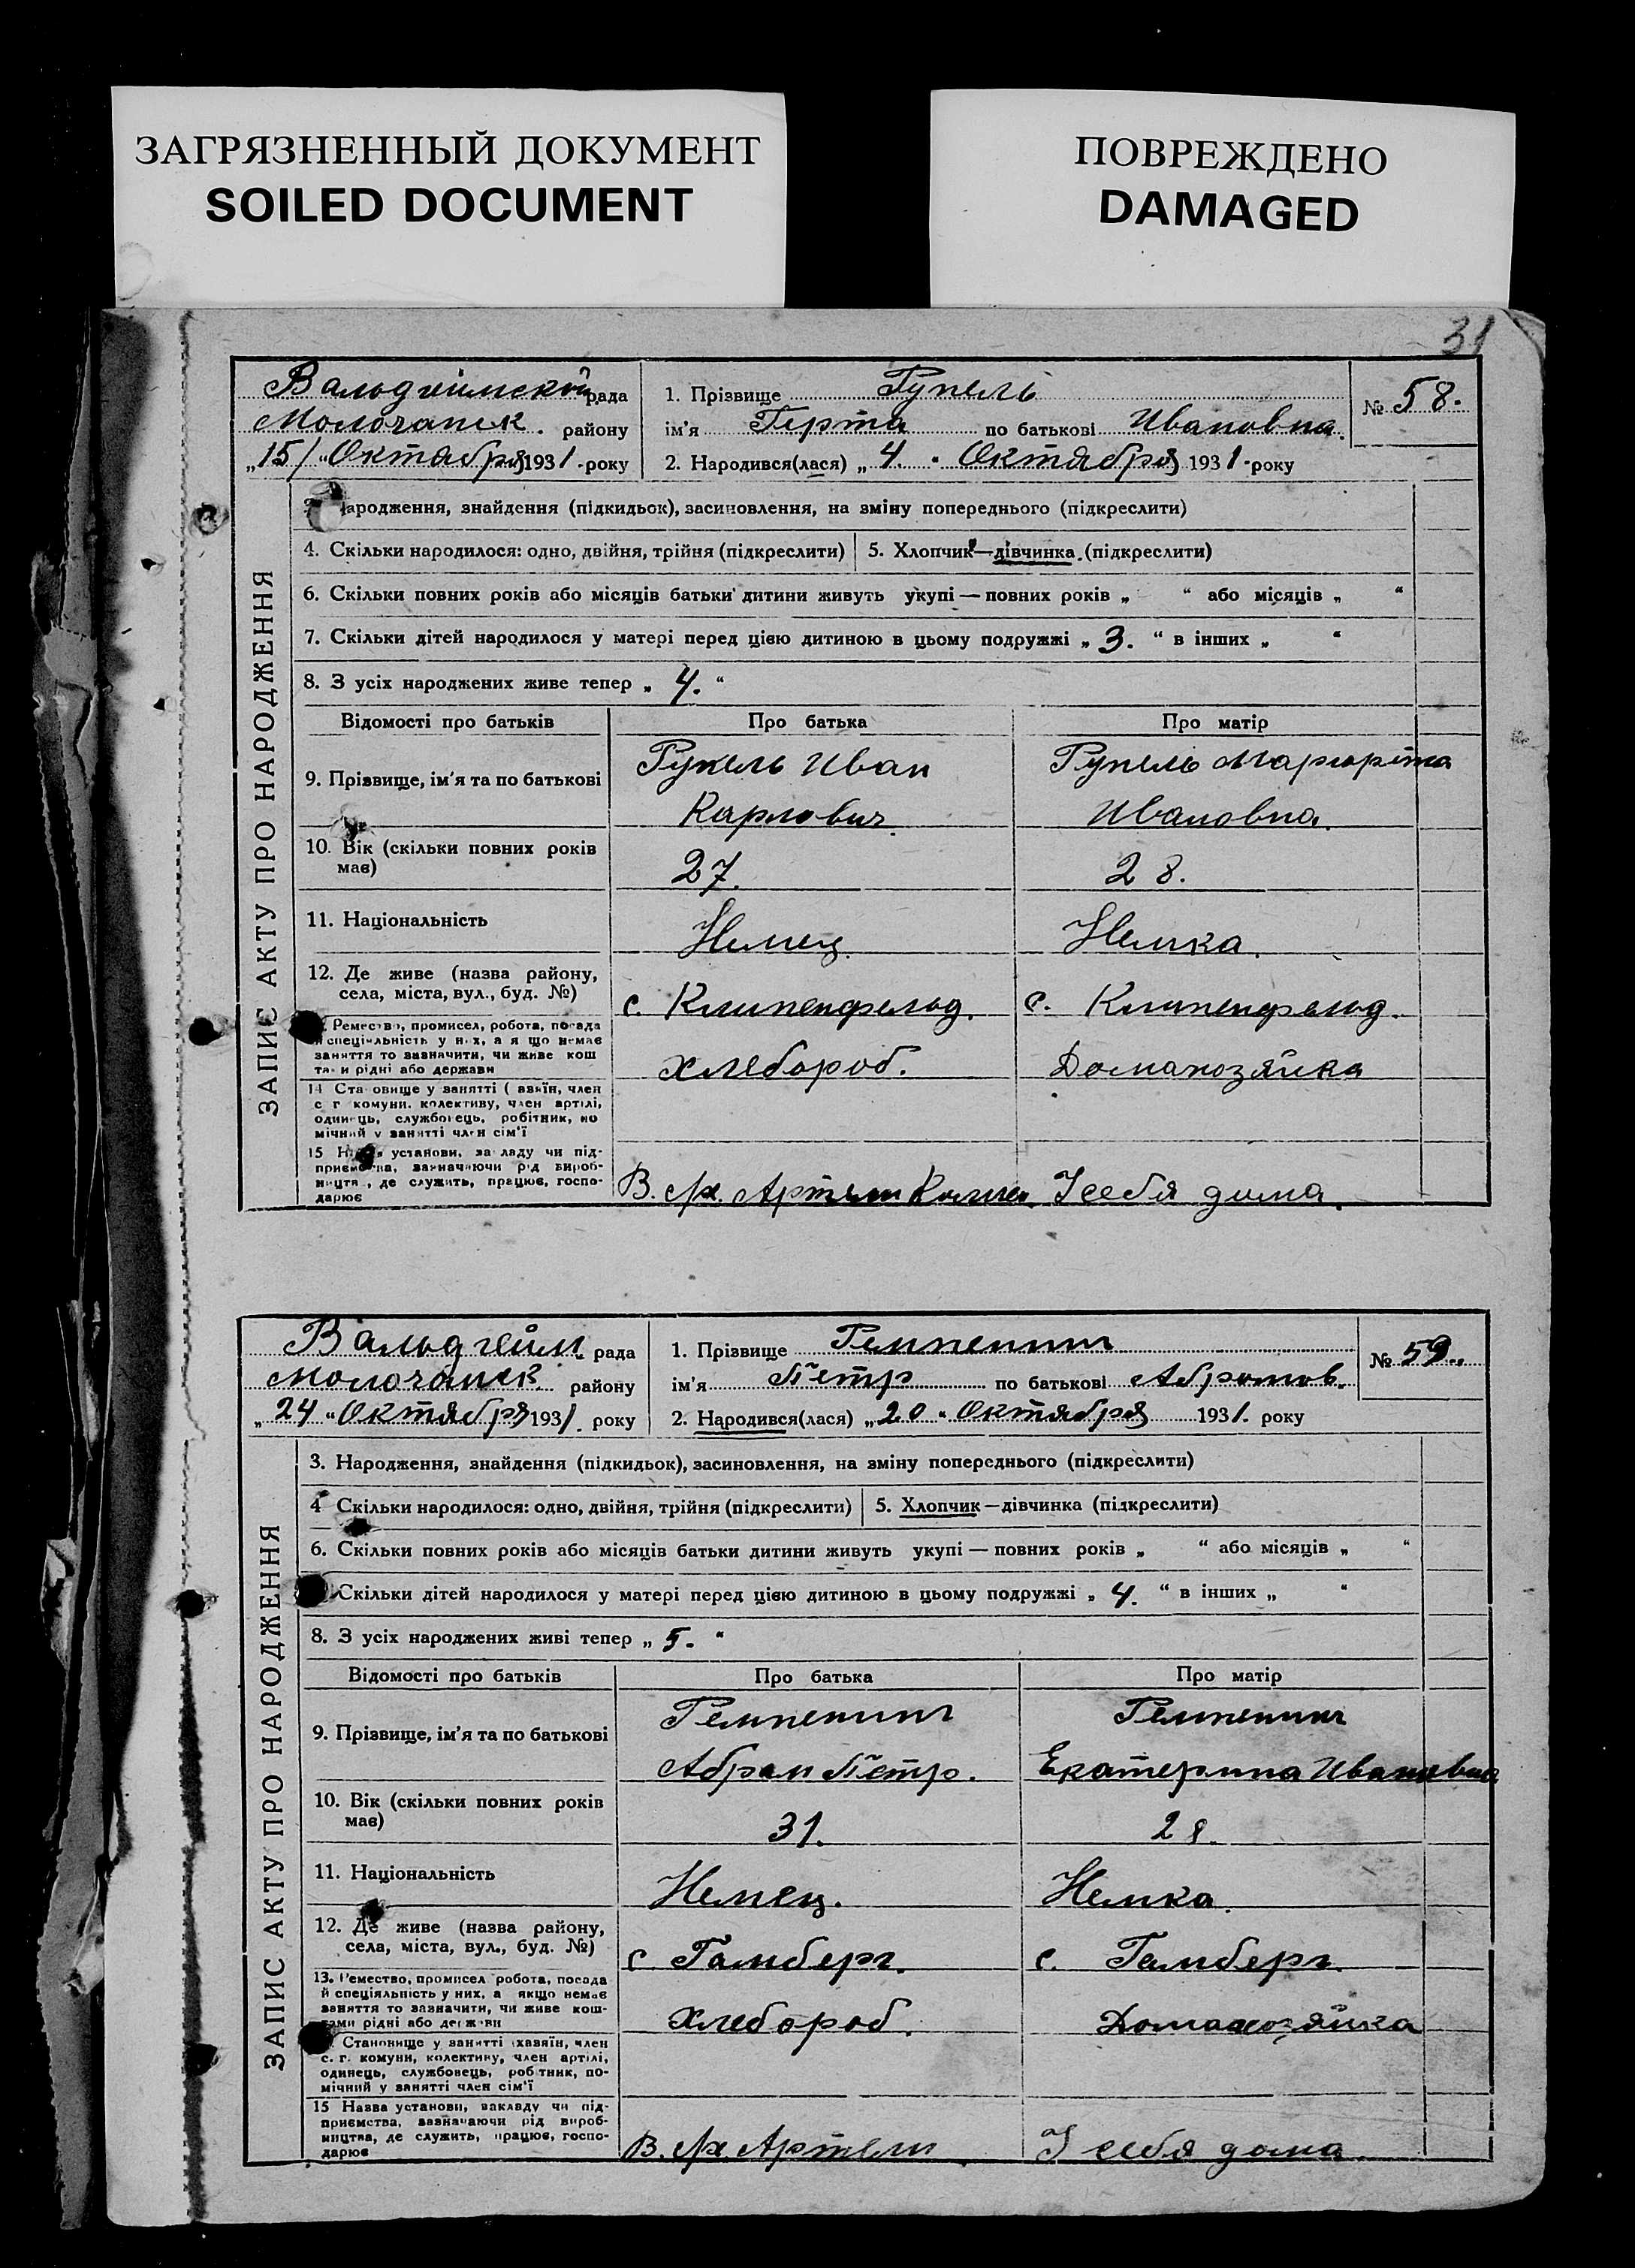 ЗАГРЯЗНЕННЫЙ ДОКУМЕНТ
SOILED DOCUMENT
ПОВРЕЖДЕНО
DAMAGED
31
Вальдгеймской рада
Молочанск. району
„15/“ Октября 1931 -року
1. Прізвище Рупель
ім'я Герта по батькові Ивановна.
2. Народився(лася) „4.“ Октября 1931-року
№ 58.
ЗАПИС АКТУ ПРО НАРОДЖЕННЯ
ародження, знайдення (підкидьок), засиновлення, на зміну попереднього (підкреслити)
4. Скільки народилося: одно, двійня, трійня (підкреслити)
5. Хлопчик—дівчинка (підкреслити)
6. Скільки повних років або місяців батьки дитини живуть укупі — повних років „ “ або місяців „ “
7. Скільки дітей народилося у матері перед цією дитиною в цьому подружжі „3.“ в інших „ “
8. З усіх народжених живе тепер „4.“
Відомості про батьків Про батька Про матір
9. Прізвище, ім'я та по батькові
Рупель Иван
Карлович.
Рупель Маргарита
Ивановна.
10. Вік (скільки повних років
має)
27.
28.
11. Національність
Немец.
Немка.
12. Де живе (назва району,
села, міста, вул., буд. №)
с. Клипенфельд.
с. Клипенфельд.
Ремество, промисел, робота, посада
й спеціяльність у них, а я що немає
заняття то зазначити, чи живе кош
та и рідні або держави
хлебороб.
Домахозяйка
14 Становище у занятті ( авяїн, член
с г комуни, колективу, член артілі,
одинець, службовець, робітник, по
мічний у занятті член сім'ї
15 Назва установи, закладу чи під-
приємства, зазначаючи рід вироб-
ництва, де служить, працює, госпо-
дарює
В. с/х. Артели
У себя дома.
Вальдгейм. рада
Молочанск. району
„24“ Октября 1931. року
1. Прізвище Гемпенинг
ім'я Пётр по батькові Абрамов.
2. Народився(лася) „20“ Октября 1931. року
№ 59.
ЗАПИС АКТУ ПРО НАРОДЖЕННЯ
3. Народження, знайдення (підкидьок), засиновлення, на зміну попереднього (підкреслити)
4 Скільки народилося: одно, двійня, трійня (підкреслити)
5. Хлопчик—дівчинка (підкреслити)
6. Скільки повних років або місяців батьки дитини живуть укупі — повних років „ “ або місяців „ “
Скільки дітей народилося у матері перед цією дитиною в цьому подружжі „4.“ в інших „ “
8. З усіх народжених живі тепер „5.“
Відомості про батьків Про батька Про матір
9. Прізвище, ім'я та по батькові
Гемпенинг
Абрам Пётр.
Гемпенинг
Екатерина Ивановна
10. Вік (скільки повних років
має)
31.
28.
11. Національність
Немец.
Немка.
12. Де живе (назва району,
села, міста, вул., буд. №)
с Гамберг.
с. Гамберг.
13. Ремество, промисел робота, посада
й спеціяльність у них, а якщо немає
заняття то зазначити, чи живе кош-
тами рідні або держави
Хлебороб.
Домахозяйка
Становище у занятті (хазяїн, член
с. г. комуни, колективу, член артілі,
одинець, службовець, робітник, по-
мічний у занятті член сім'ї
15 Назва установи, закладу чи під-
приємства, зазначаючи рід вироб-
ництва, де служить, працює, госпо-
дарює
В. с/х. Артели
У себя дома